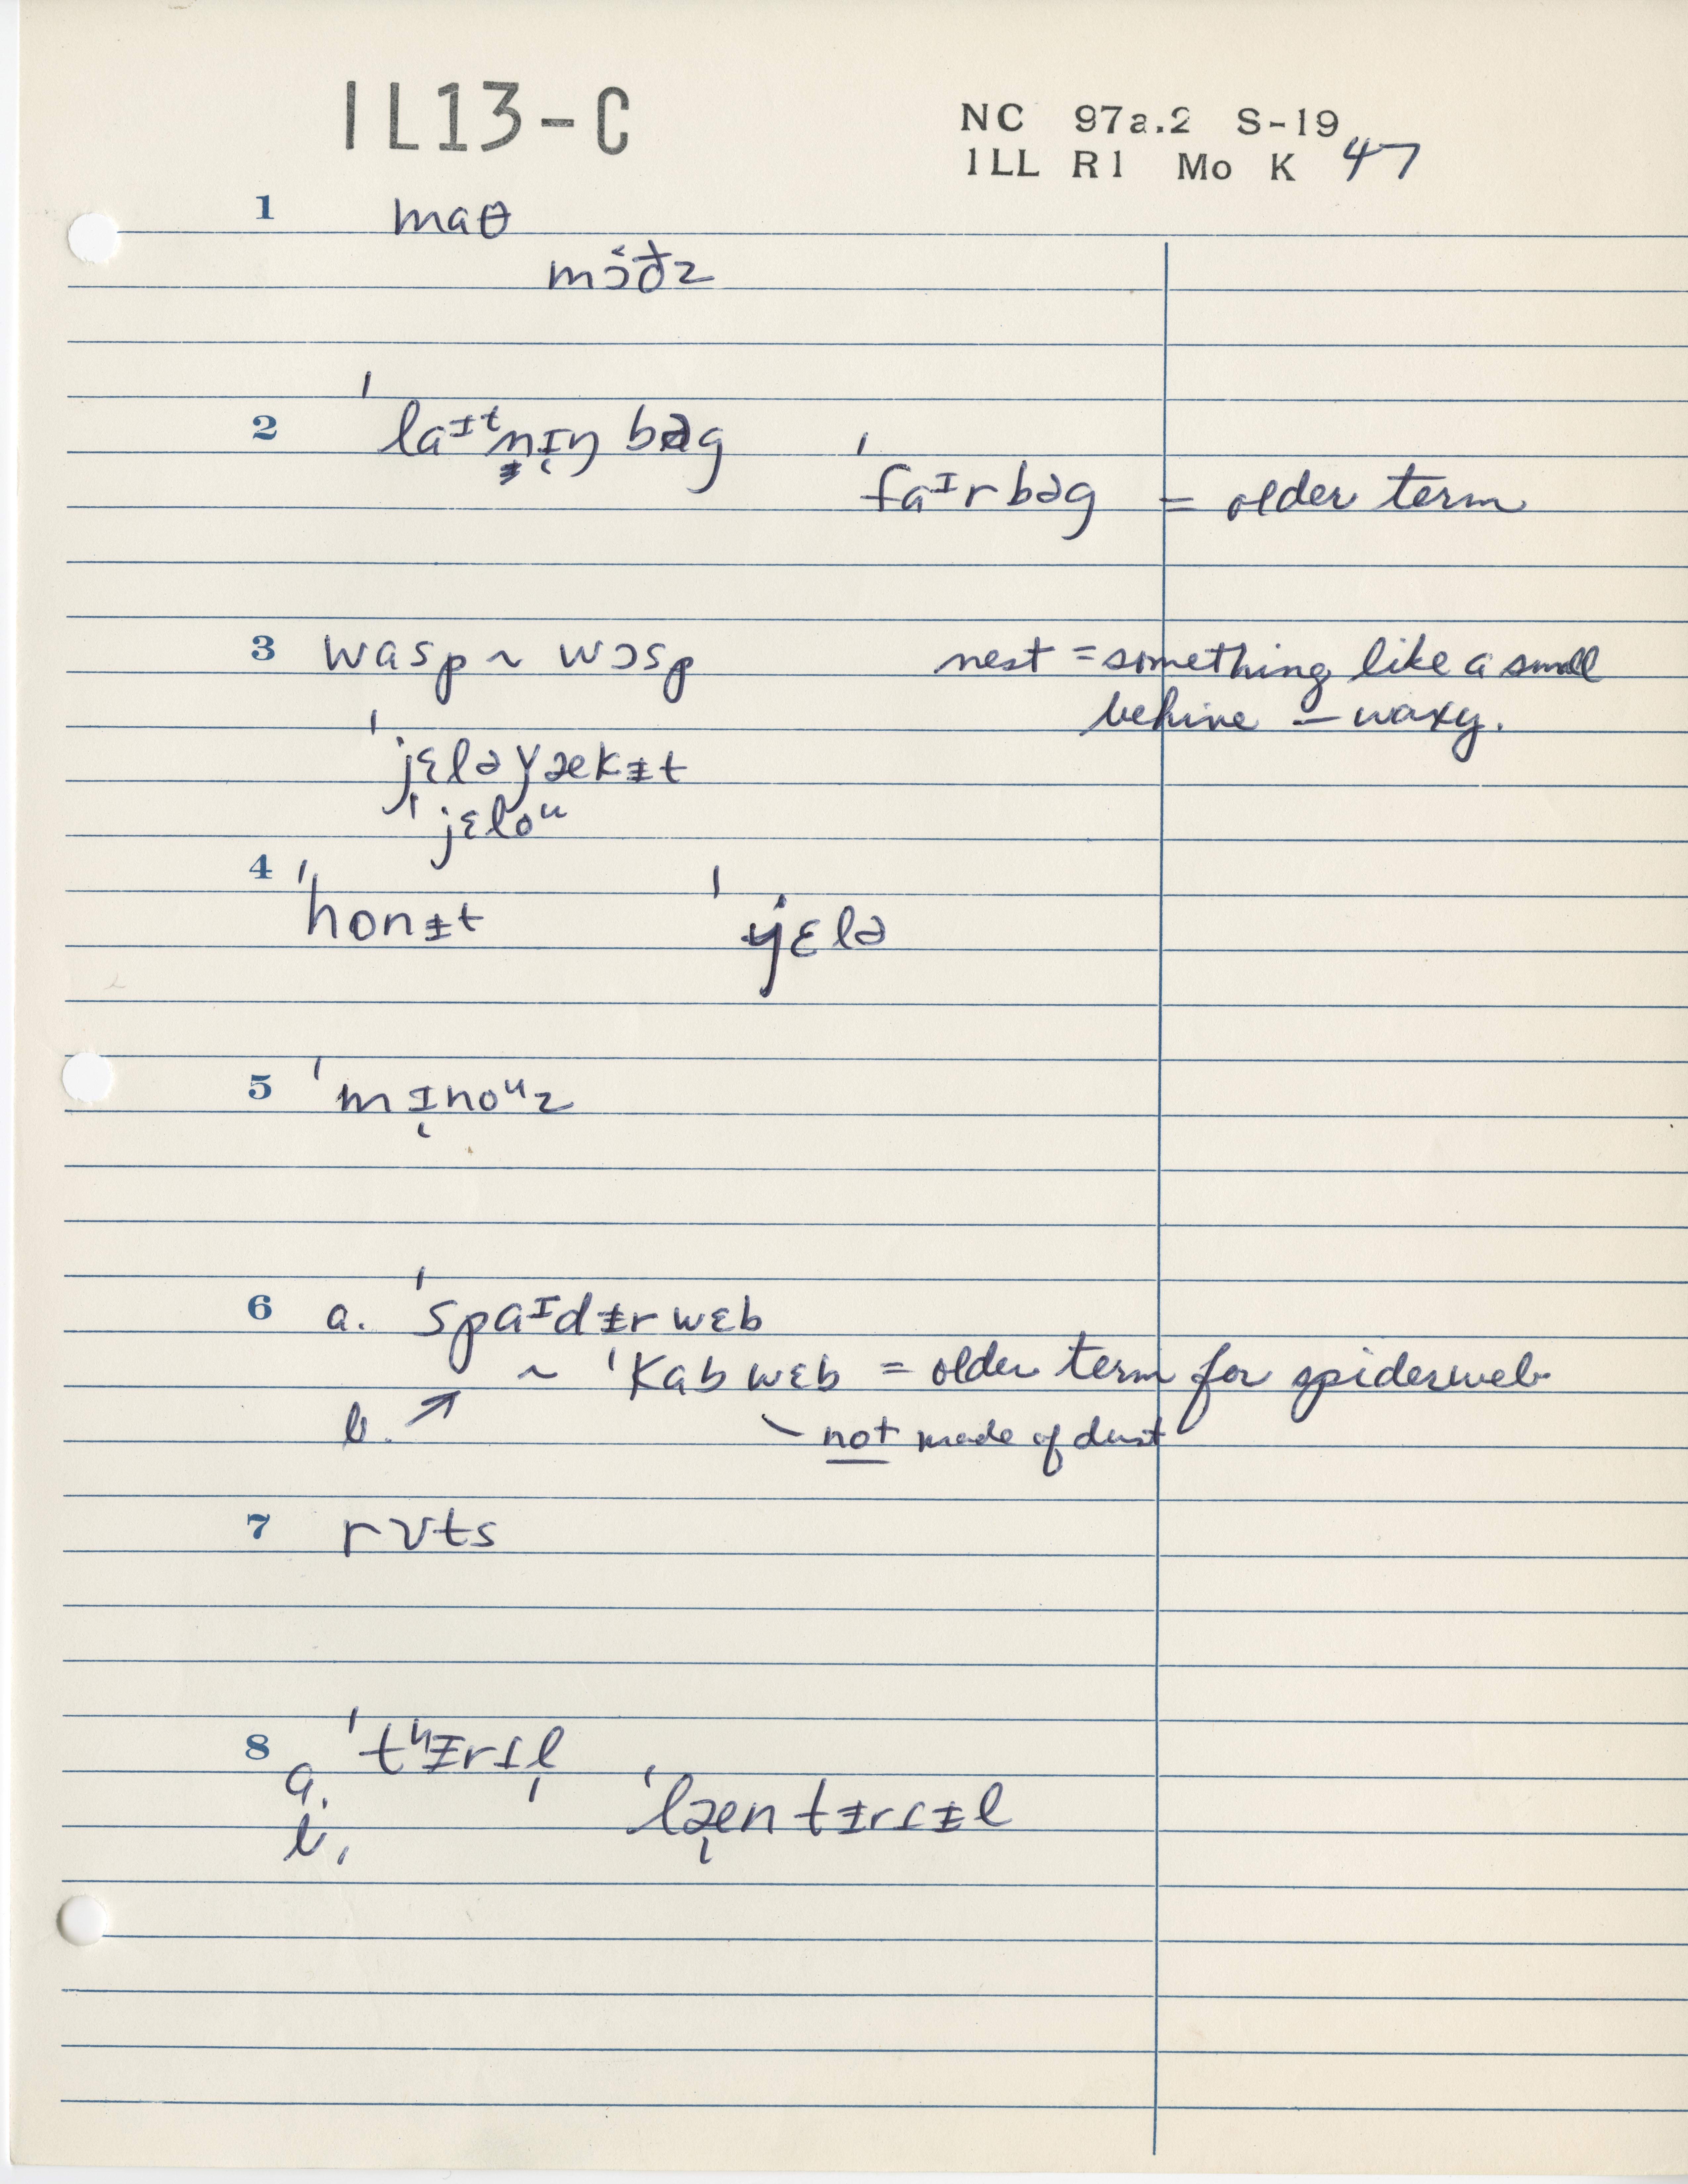 1L13-C
NC 97a.2 S-19
1LL R1 Mo K 47
1 maθ
mɔ́ðz
2 ˈlaᶦᵗnɪŋ bəg ˈfaᶦrbəg = older term
3 wasp ~ wɔsp nest = something like a small
behive – waxy.
ˈjɛləɣækɨt
ˈjɛloᵘ
4 ˈhonɨt ˈjɛlə
5 ˈmɪnoᵘz
6 a. ˈspaᶦdɨrwɛb
~ ˈkabwɛb = older term for spiderweb
b. ↗ not made of dust
7 rʊts
8 a. ˈtʰɨrsɪl̩
b. ˈlæn tɨrsɨl